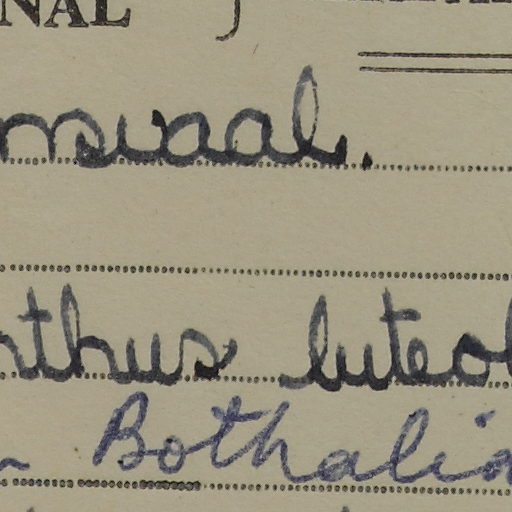 NAL
nsvaal.
nthus luteol
Bothalia